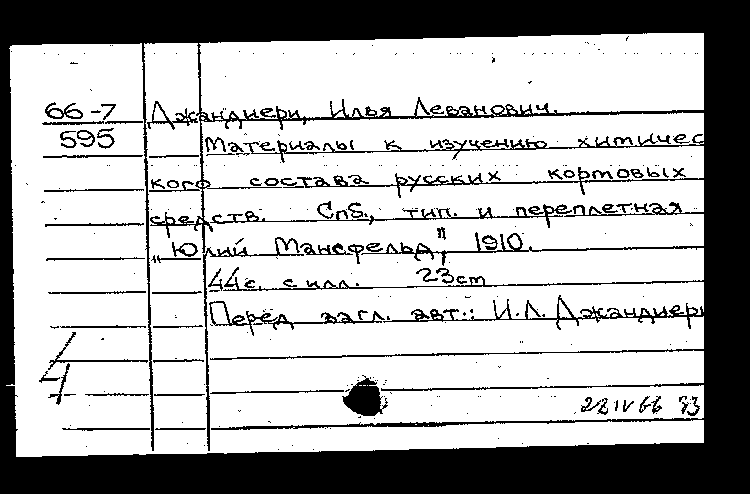 66-7 Джандиери, Илья Леванович.
595 Материалы к изучению химичес
кого состава русских кормовых
средств. Спб., тип. и переплетная
„Юлий Мансфельд", 1910.
44с. с илл. 23cm
Перед загл. авт.: И.Л. Джандиери
4
28 IV 66 33